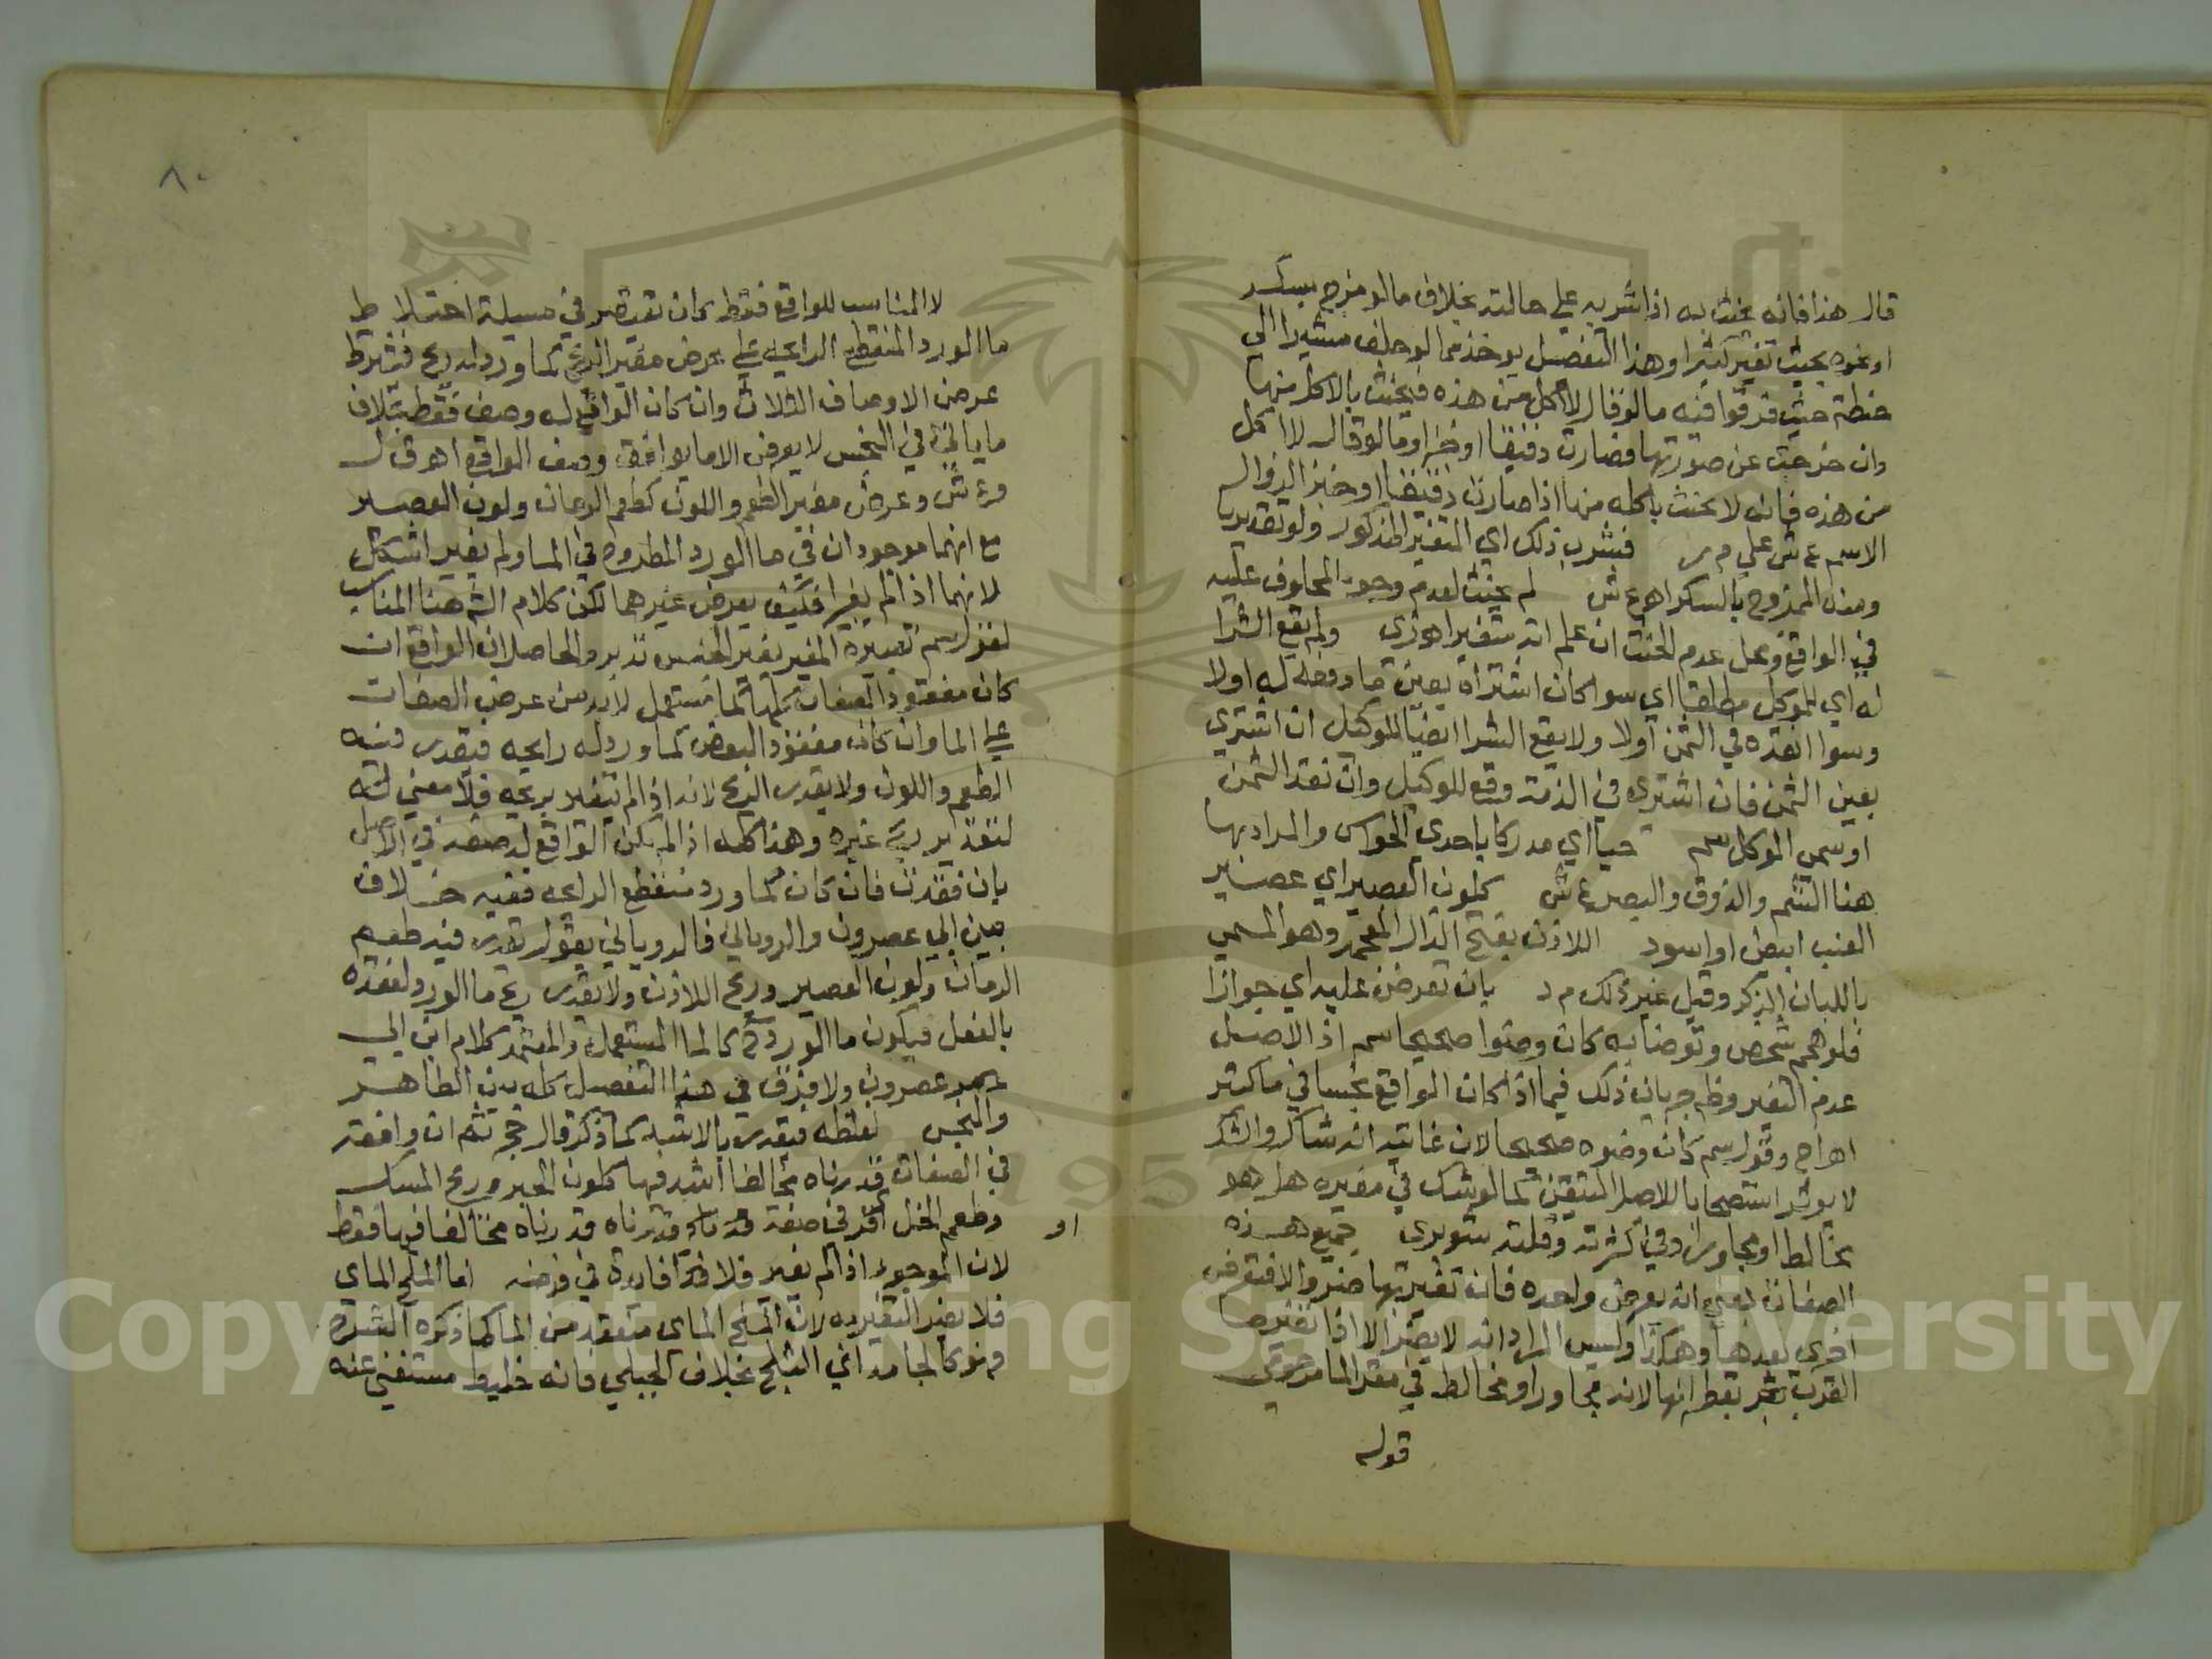 قال هذا فانه يحنث به اذا شربه علي حالته بخلاف ما لو مزج بسكر
او نحوه بحيث تغير كثيرا وهذا التفصيل يوخذ مما لو حلف مشيرا الى
حنطة حيث فرقوا فيه ما لو قال لا آكل من هذه فيحنث بالاكل منها
وان خرجت عن صورتها فصارت دقيقا او خبزا وما لو قال لا اكل
من هذه فانه لا يحنث باكله منها اذا صارت دقيقا او خبزا لزوال
الاسم ع ش علي م ر فشرب ذلك اي المتغير المذكور ولو تقديريا
ومنه الممزوج بالسكر اهع ش لم يحنث لعدم وجود المحلوف عليه
في الواقع ومحل عدم الحنث ان علم انه متغير اه ولم يقع الشرا
له اي للموكل مطلقا اي سوا كان اشتراه بعين ما دفعه له اولا
وسوا نقده في الثمن اولا ولا يقع الشرا ايضا للوكيل ان اشتري
بعين الثمن فان اشترى في الذمة وقع للوكيل وان نقد الثمن
او سمي الموكل سم حسيا اي مدركا باحدى الحواس والمراد بها
هنا الشم والذوق والبصر ع ش كلون العصير اي عصير
العنب ابيض او اسود اللاذن بفتح الذال المعجمه وهو المسمي
باللبان الذكر وقيل غير ذلك م د بان تعرض عليه اي جوازا
فلو هجم شخص وتوضا به كان وضوا صحيحا سم اذ الاصل
عدم التغير وظ جريان ذلك فيما اذا كان الواقع نجسا في ما كثير
اه اج وقول سم كان وضوه صحيحا لان غايته انه شاك والشك
لا يوثر استصحابا للاصل المتيقن كما لو شك في مغيره هل هو
مخالط او مجاور او في كثرته وقلته شوبرى جميع هذه
الصفات يعني انه يعرض واحده فان تغير بها ضر والا فتعرض
اخرى بعدها وهكذا وليس المراد انه لا يضر الا اذا تغير بها
القرب بقطرانها لانه مجاور او مخالط في مقر الما مرحومي
قوله
٨٠
لا المناسب للواقع فقط كان تقتصر في مسيلة اختلاط
ما الورد المنقطع الرايحه علي عرض مغير الريح كما ورد له ريح فيشترط
عرض الاوصاف الثلاث وان كان الواقع له وصف فقط بخلاف
ما ياتي في النجس لا يعرض الا ما يوافق وصف الواقع اهق ل
و ع ش وعرض مغير الطعم واللون كطعم الرمان ولون العصير
مع انهما موجودان في ما الورد المطروح في الما ولم يغير اشكل
لانهما اذا لم يغيرا فكيف يعرض غيرهما لكن كلام الش هنا المناسب
لقول سم تعبيره المغير بغير الجنس تدبر والحاصل ان الواقع ان
كان مفقود الصفات كلها كما مستعمل لابد من عرض الصفات
علي الما وان كان مفقود البعض كما ورد له رايحه فيقدر فيه
الطعم واللون ولا يقدر الريح لانه اذا لم يتغير بريحه فلا معني له
لتقدير ريح غيره وهذا كله اذا لم يكن الواقع له صفه في الاصل
بان فقدت فان كان كما ورد منقطع الرايحه ففيه خلاف
بين ابي عصرون والروياني فالروياني يقول يقدر فيه طعم
الرمان ولون العصير وريح اللاذن ولا يقدر ريح ما الورد لفقده
بالفعل فيكون ما الورد كالما المستعمل والمعتمد كلام ابن ابي
عصرون ولا فرق في هذا التفصيل كله بين الطاهر
والنجس لغلظه فيقدر بالاشبه كما ذكر قال حج ثم ان وافقه
في الصفات قدرناه مخالفا اشد فيها كلون الحبر وريح المسك
وطعم الخل او في صفة قدرناه مخالفا فيها فقط
لان الموجود اذا لم يغير فلا فايدة في فرضه اما الملح الماي
فلا يضر التغير به لان الملح الماي منعقد من الما كما ذكره الشارح
فهو كالجامد اي الثلج بخلاف الجبلي فانه خليط مستغني عنه
او
Copyright © King Saud University
1957